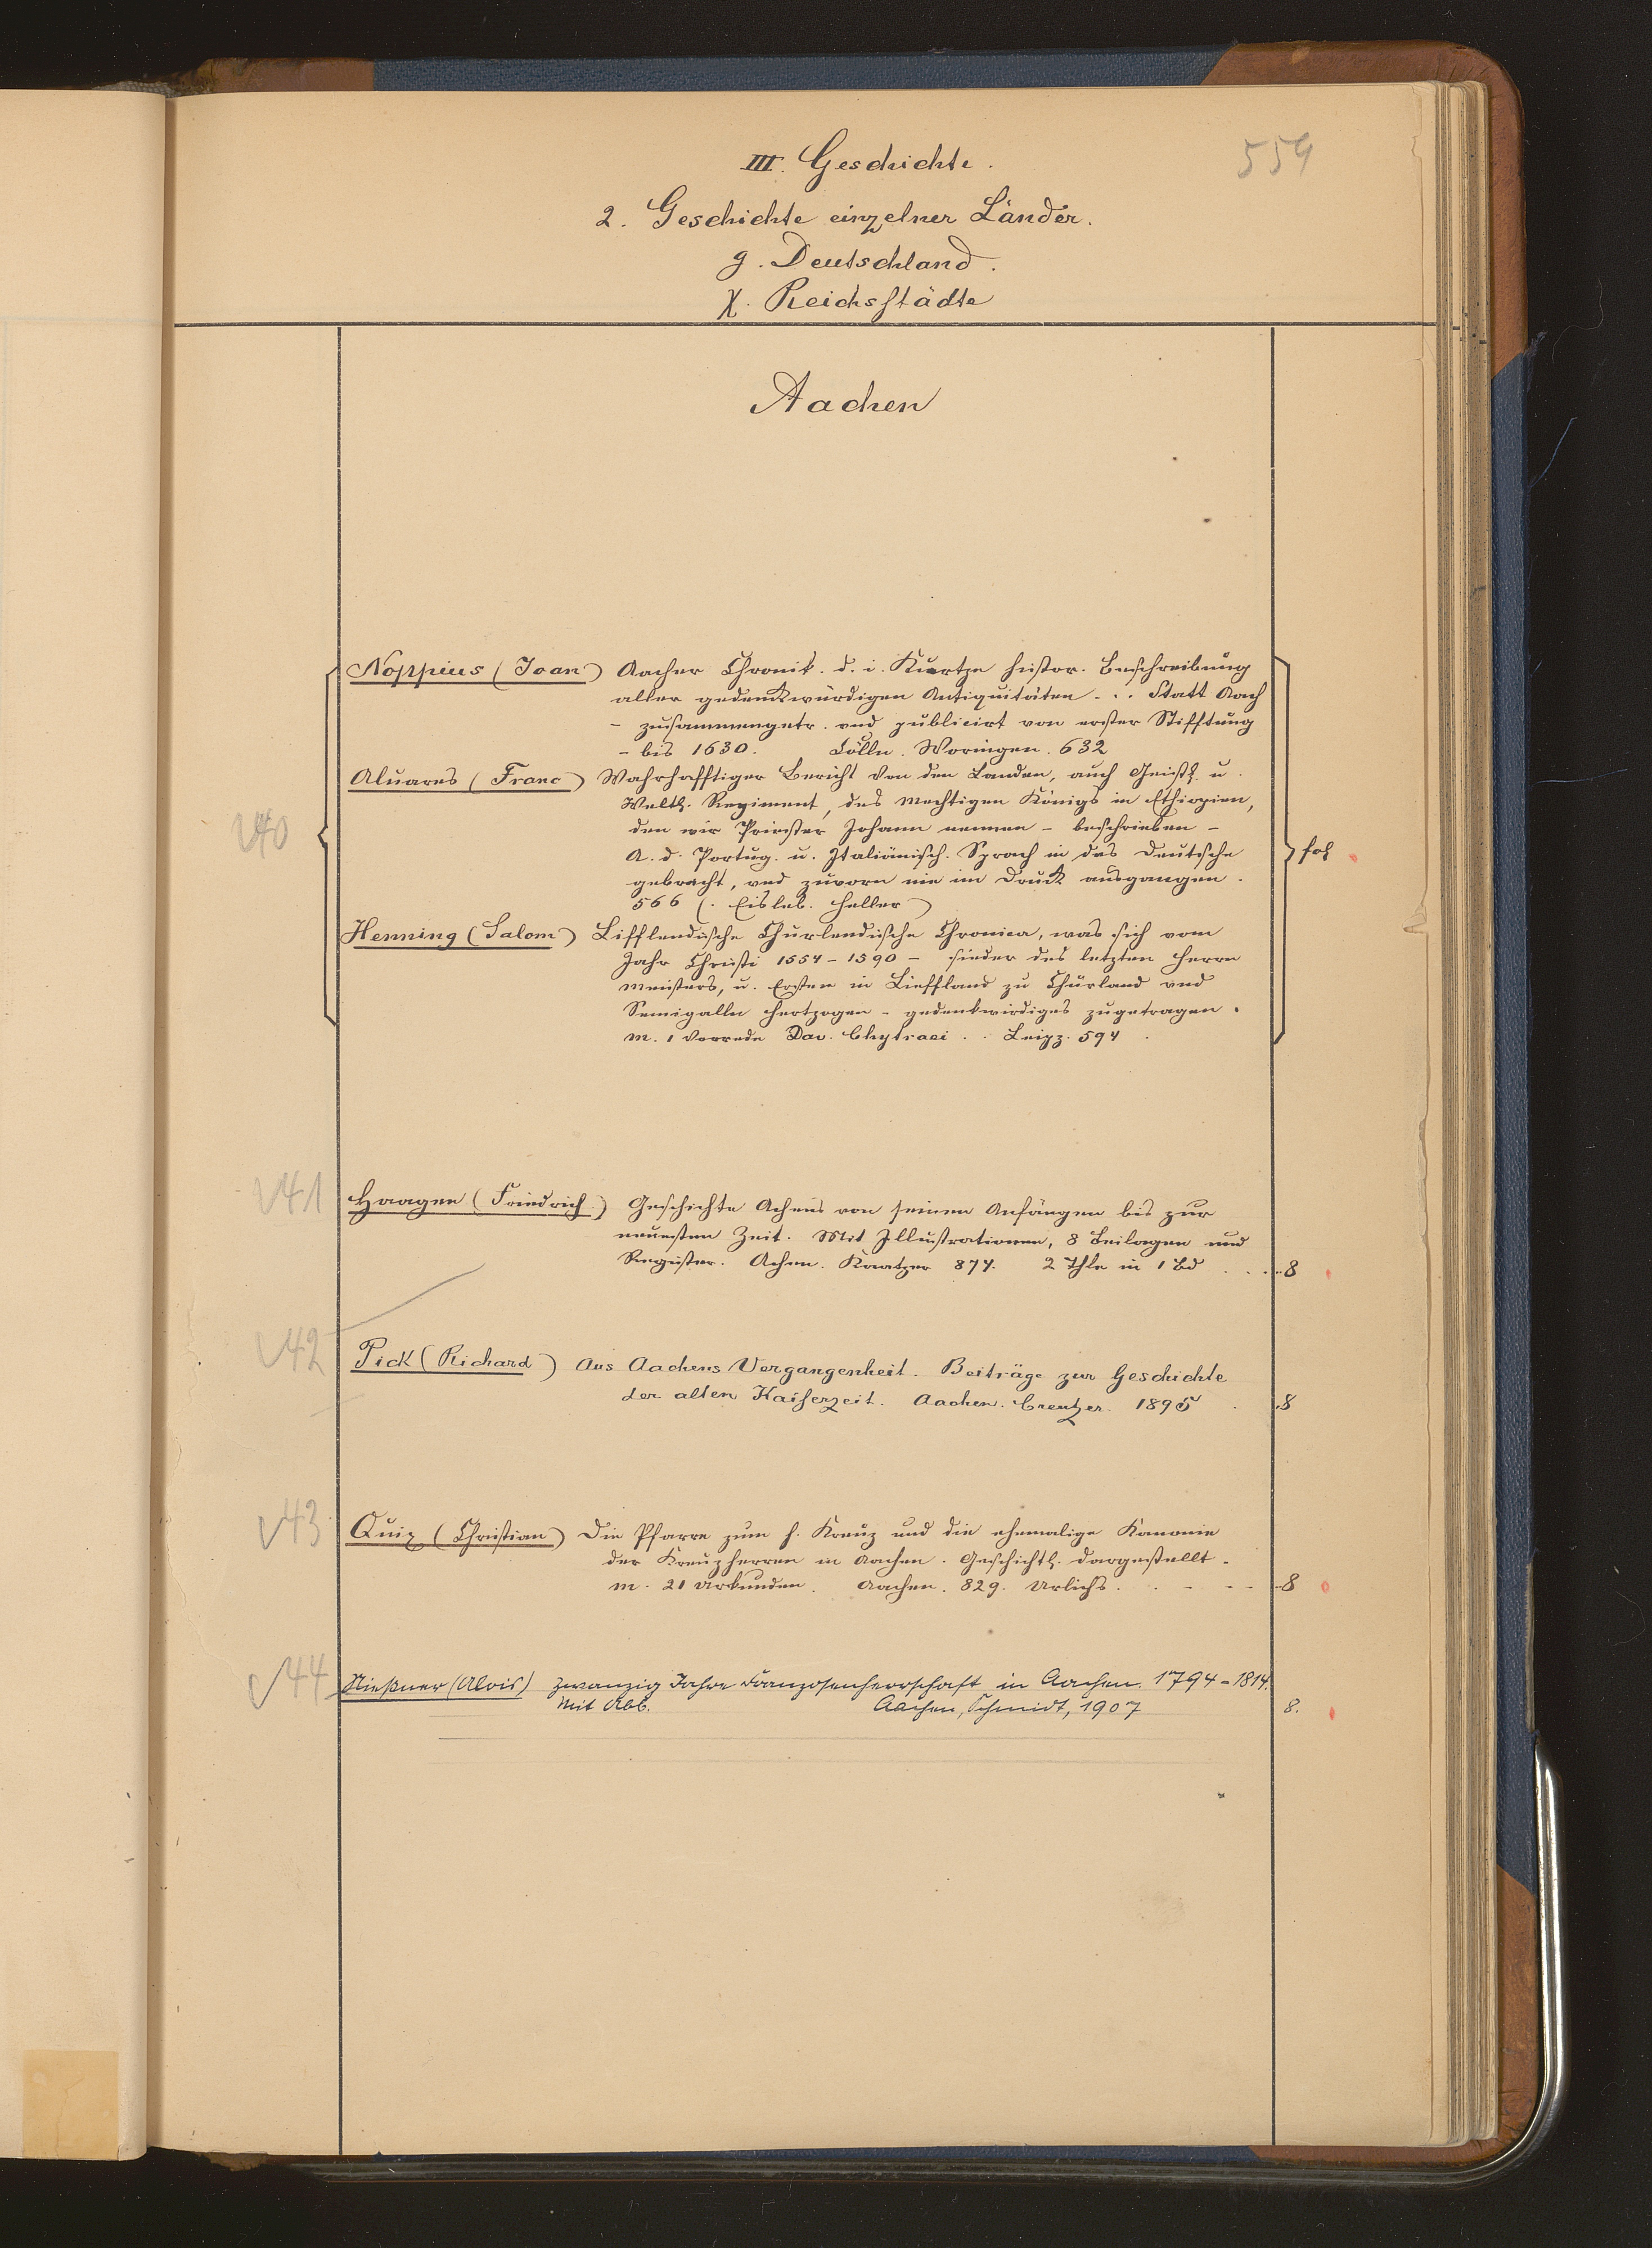 559
III. Geschichte.
2. Geschichte einzelner Länder.
g. Deutschland.
χ. Reichsstädte
Aachen
40
Noppius (Joan) Aacher Chronik. d. i. Kurtze histor. Beschreibung
aller gedenkwürdigen Antiquitäten ... Statt Aach
- zusammengetr. und publicirt von erster Stifftung
- bis 1630. Cölln. Woringen. 632
Aluares (Franc) Wahrhafftiger Bericht von den Landen, auch Geistl. u.
Weltl. Regiment, des mechtigen Königs in Ethiopien,
den wir Priester Johann nennen - beschrieben -
A. d. Portug. u. Italiänisch. Sprach in das Deutsche
gebracht, und zuvorn nie im Druck ausgangen.
566 (. Eisleb. Heller) fol
Henning (Salom) Lifflendische Churlendische Chronica, was sich vom
Jahr Christi 1554-1590 - sieder des letzten Herrn
Meisters, u. Ersten in Lieffland zu Churland und
Semigalln Hertzogen - gedenkwirdiges zugetragen.
m. 1 Vorrede Dav. Chytraei . . Leipz. 594 .
41 Haagen (Friedrich) Geschichte Achens von seinen Anfängen bis zur
neuesten Zeit. Mit Illustrationen, 8 Beilagen und
Register. Achen. Kaatzer 874. 2 Thle in 1 Bd . . . . 8
42 Pick (Richard) Aus Aachens Vergangenheit. Beiträge zur Geschichte
der alten Kaiserzeit. Aachen. Creutzer. 1895 . . 8
43 Quix (Christian) Die Pfarre zum h. Kreuz und die ehemalige Kanonie
der Kreuzherren in Aachen. Geschichtl. dargestellt.
m. 21 Urkunden. Aachen. 829. Urlichs. . - - - - 8
44 Nießner (Alois) Zwanzig Jahre Franzosenherrschaft in Aachen. 1794-1814.
Mit Abb. Aachen, Schmidt, 1907 8.